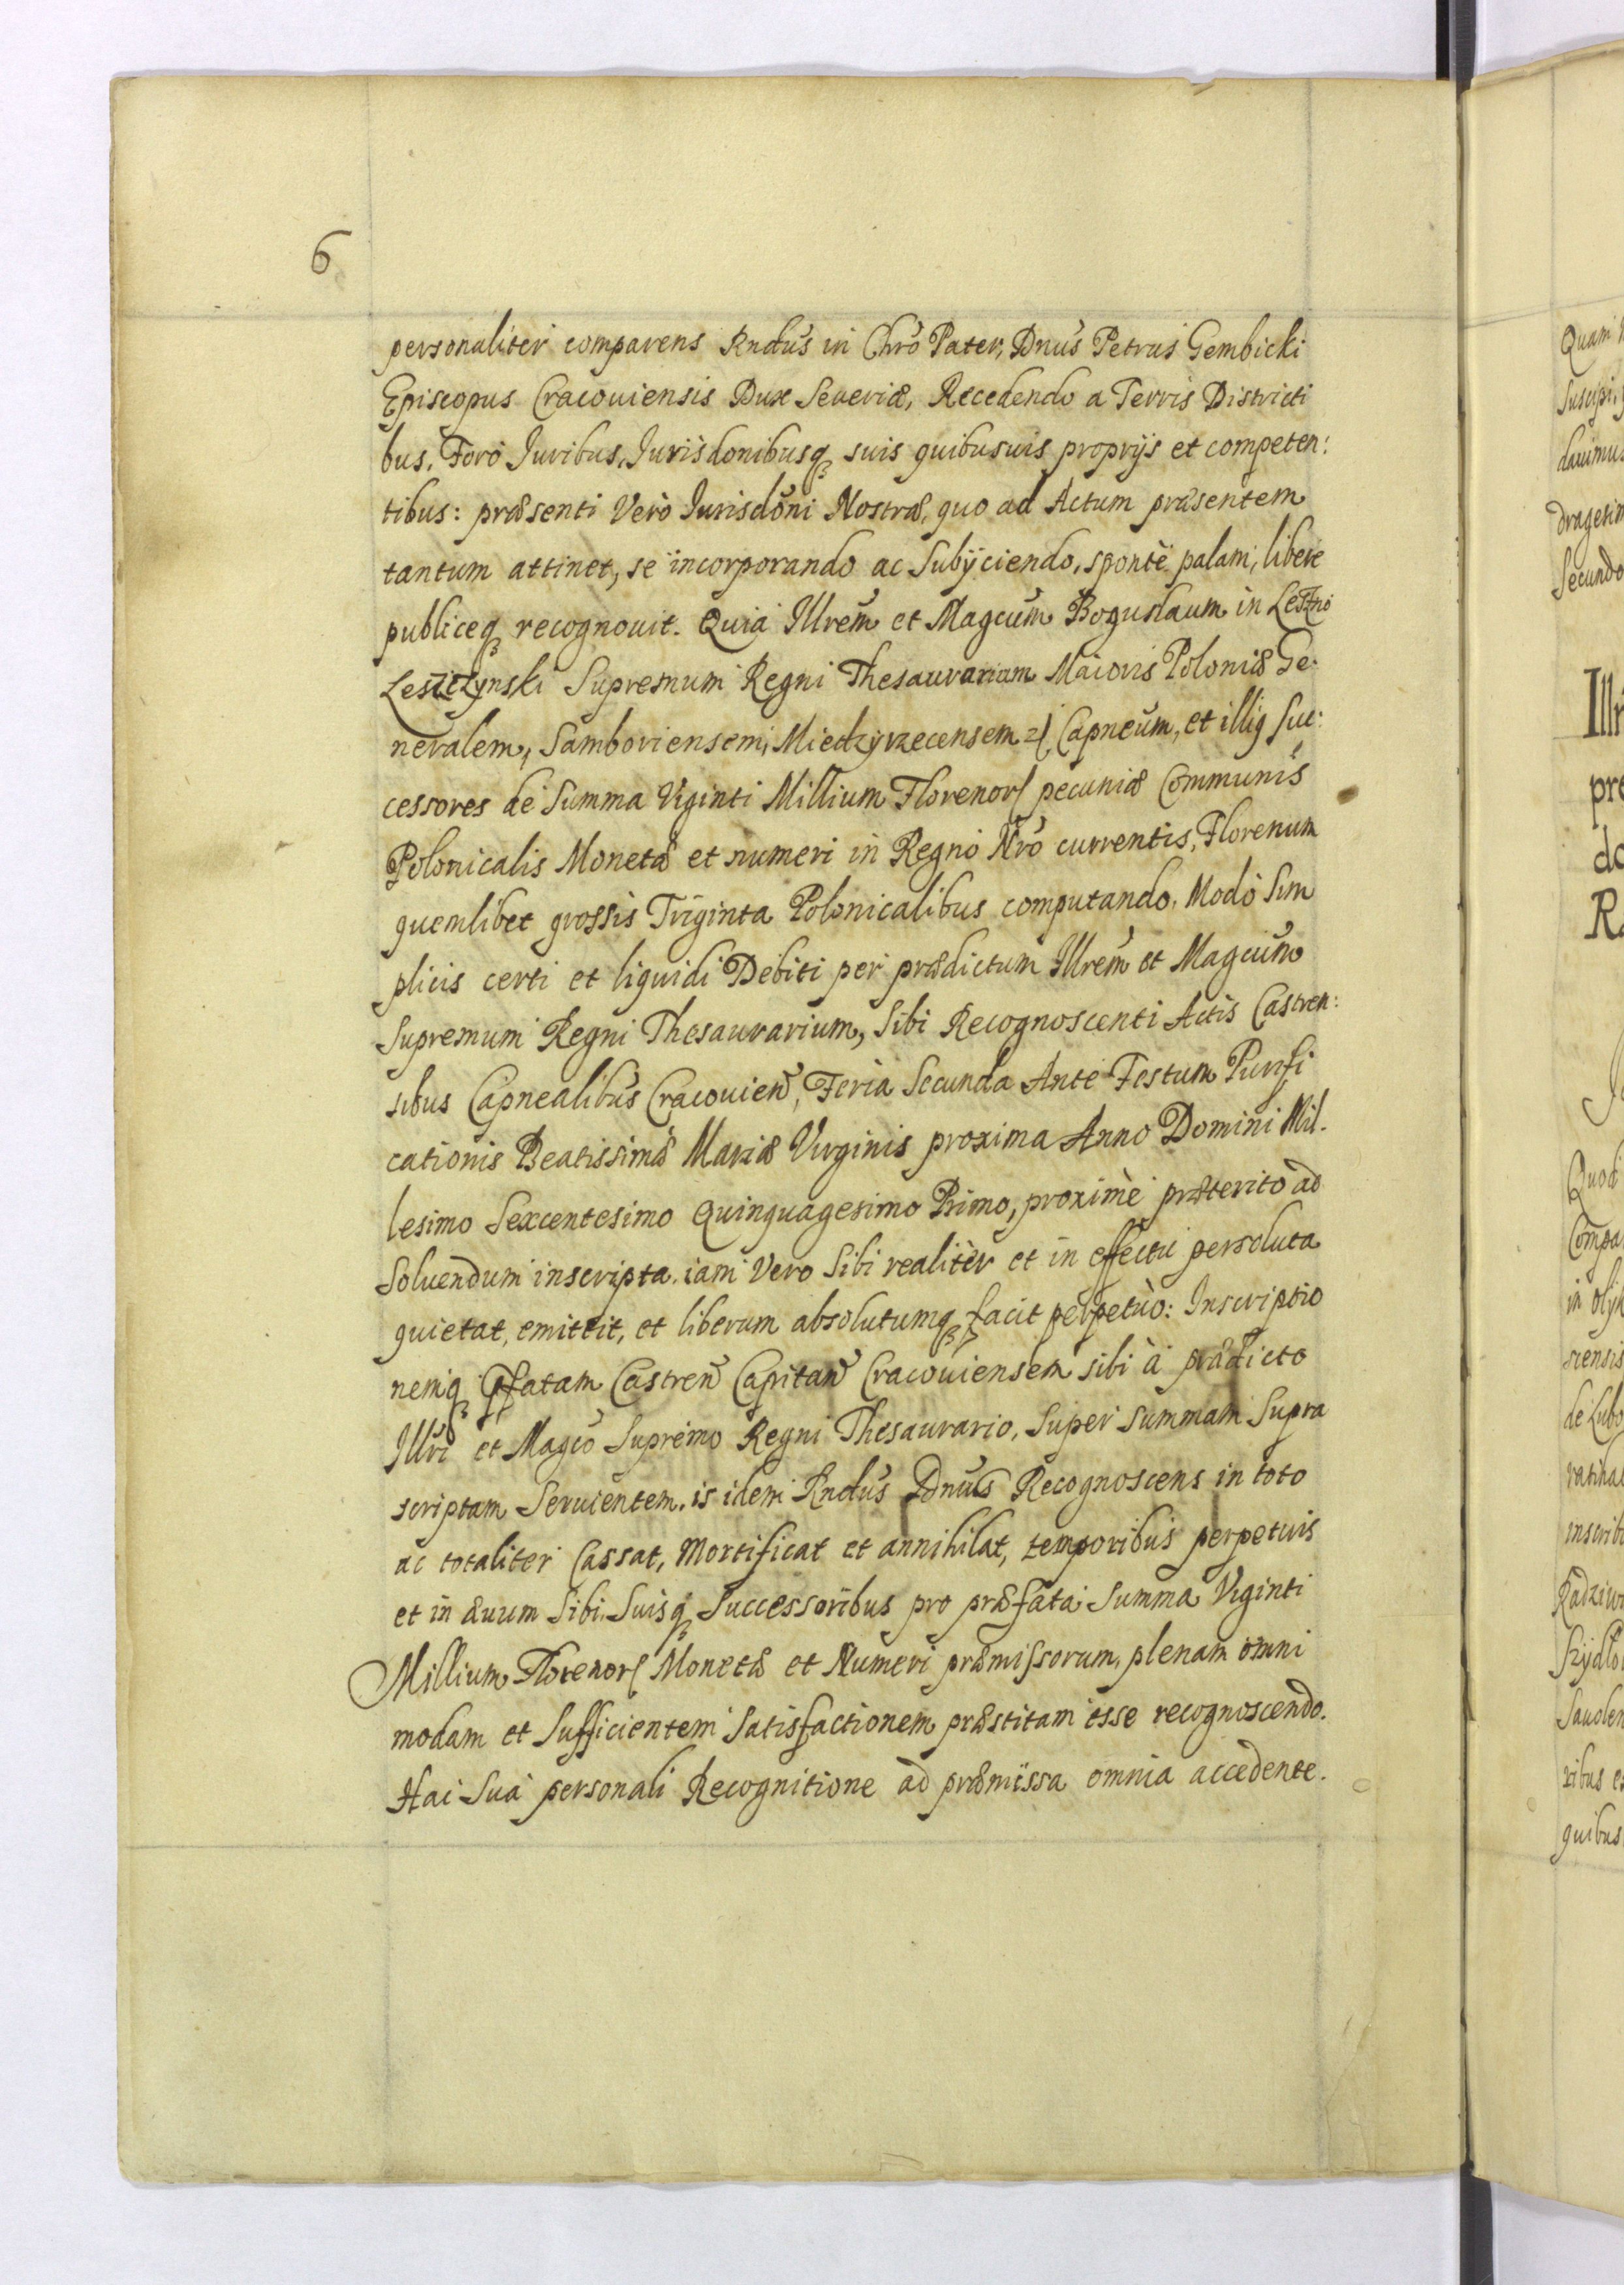 6
personaliter comparens Rndus in Chro Pater, Dnus Petrus Gembicki
Episcopus Cracouiensis Dux Seueriæ, Recedendo a Terris Districti
bus, Foro Juribus, Jurisdonibusq suis quibusuis proprijs et competen:
tibus: præsenti Verò Jurisdoni Nostræ, quo ad Actum præsentem
tantum attinet, se incorporando ac Subijciendo, spontè palam, libere
publiceq recognouit. Quia Illrem et Magcum Boguslaum in Leszno
Leszczynski Supremum Regni Thesaurarium Maioris Poloniæ Ge-
neralem, Samboriensem, Miedzyrzecensem Capneum, et illiq suc:
cessores de Summa Viginti Millium Florenor pecuniæ Communis
Polonicalis Monetæ et numeri in Regno Nro currentis, Florenum
quemlibet grossis Triginta Polonicalibus computando, Modò Sim
plicis certi et liquidi Debiti per prædictum Illrem et Magcum
Supremum Regni Thesaurarium, Sibi Recognoscenti Actis Castren:
sibus Capnealibus Cracouien, Feria Secunda Ante Festum Purifi
cationis Beatissimæ Mariæ Virginis proxima Anno Domini Mil-
lesimo Sexcentesimo Quinquagesimo Primo, proximè præterito ad
Soluendum inscripta, iam Vero Sibi realitèr et in effectu persoluta
quietat, emittit, et liberum absolutumq facit perpetùo: Inscriptio
nemq pfatam Castren Capitan Cracouiensem sibi à prædicto
Illri et Magco Supremo Regni Thesaurario, Super Summam Supra
scriptam Seruientem, is idem Rndus Dnus Recognoscens in toto
ac totaliter Cassat, Mortificat et annihilat, temporibus perpetuis
et in æuum Sibi, Suisq Successoribus pro præfata Summa Viginti
Millium Florenor Monetæ et Numeri præmissorum, plenam omni
modam et Sufficientem Satisfactionem præstitam esse recognoscendo.
Hac Suà personali Recognitione ad præmissa omnia accedente.